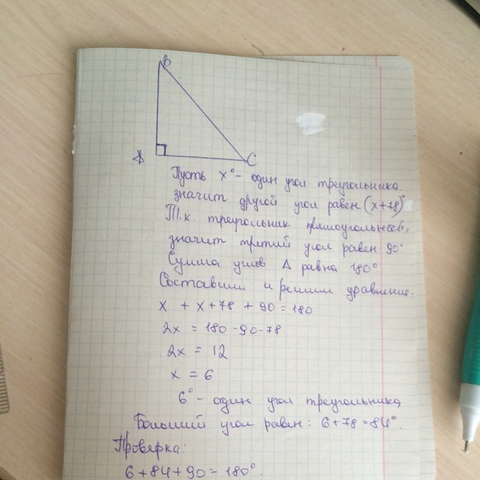 B
A
C
Пусть x° - один угол треугольника
значит другой угол равен (x+78)°
Т.к. треугольник прямоугольный,
значит третий угол равен 90°
Сумма углов Δ равна 180°
Составим и решим уравнение.
x + x+78 + 90 = 180
2x = 180-90-78
2x = 12
x = 6
6° - один угол треугольника
Больший угол равен: 6+78=84°.
Проверка:
6+84+90=180°.